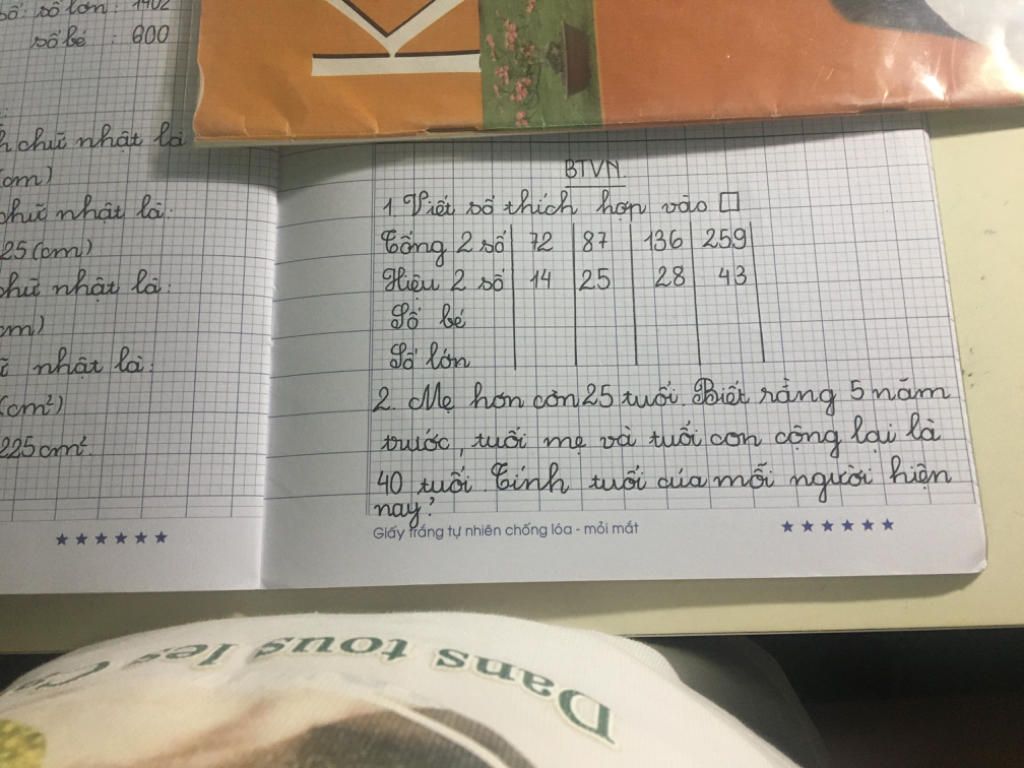 số: số lớn: 1402
số bé : 600
chữ nhật là
cm)
chữ nhật là:
25 (cm)
chữ nhật là:
cm)
nhật là:
(cm²)
225 cm².
K
BTVN
1. Viết số thích hợp vào □
Tổng 2 số 72 87 136 259
Hiệu 2 số 14 25 28 43
Số bé
Số lớn
2. Mẹ hơn con 25 tuổi. Biết rằng 5 năm
trước, tuổi mẹ và tuổi con cộng lại là
40 tuổi. Tính tuổi của mỗi người hiện
nay?
Giấy trắng tự nhiên chống lóa - mỏi mắt
Dans tous les